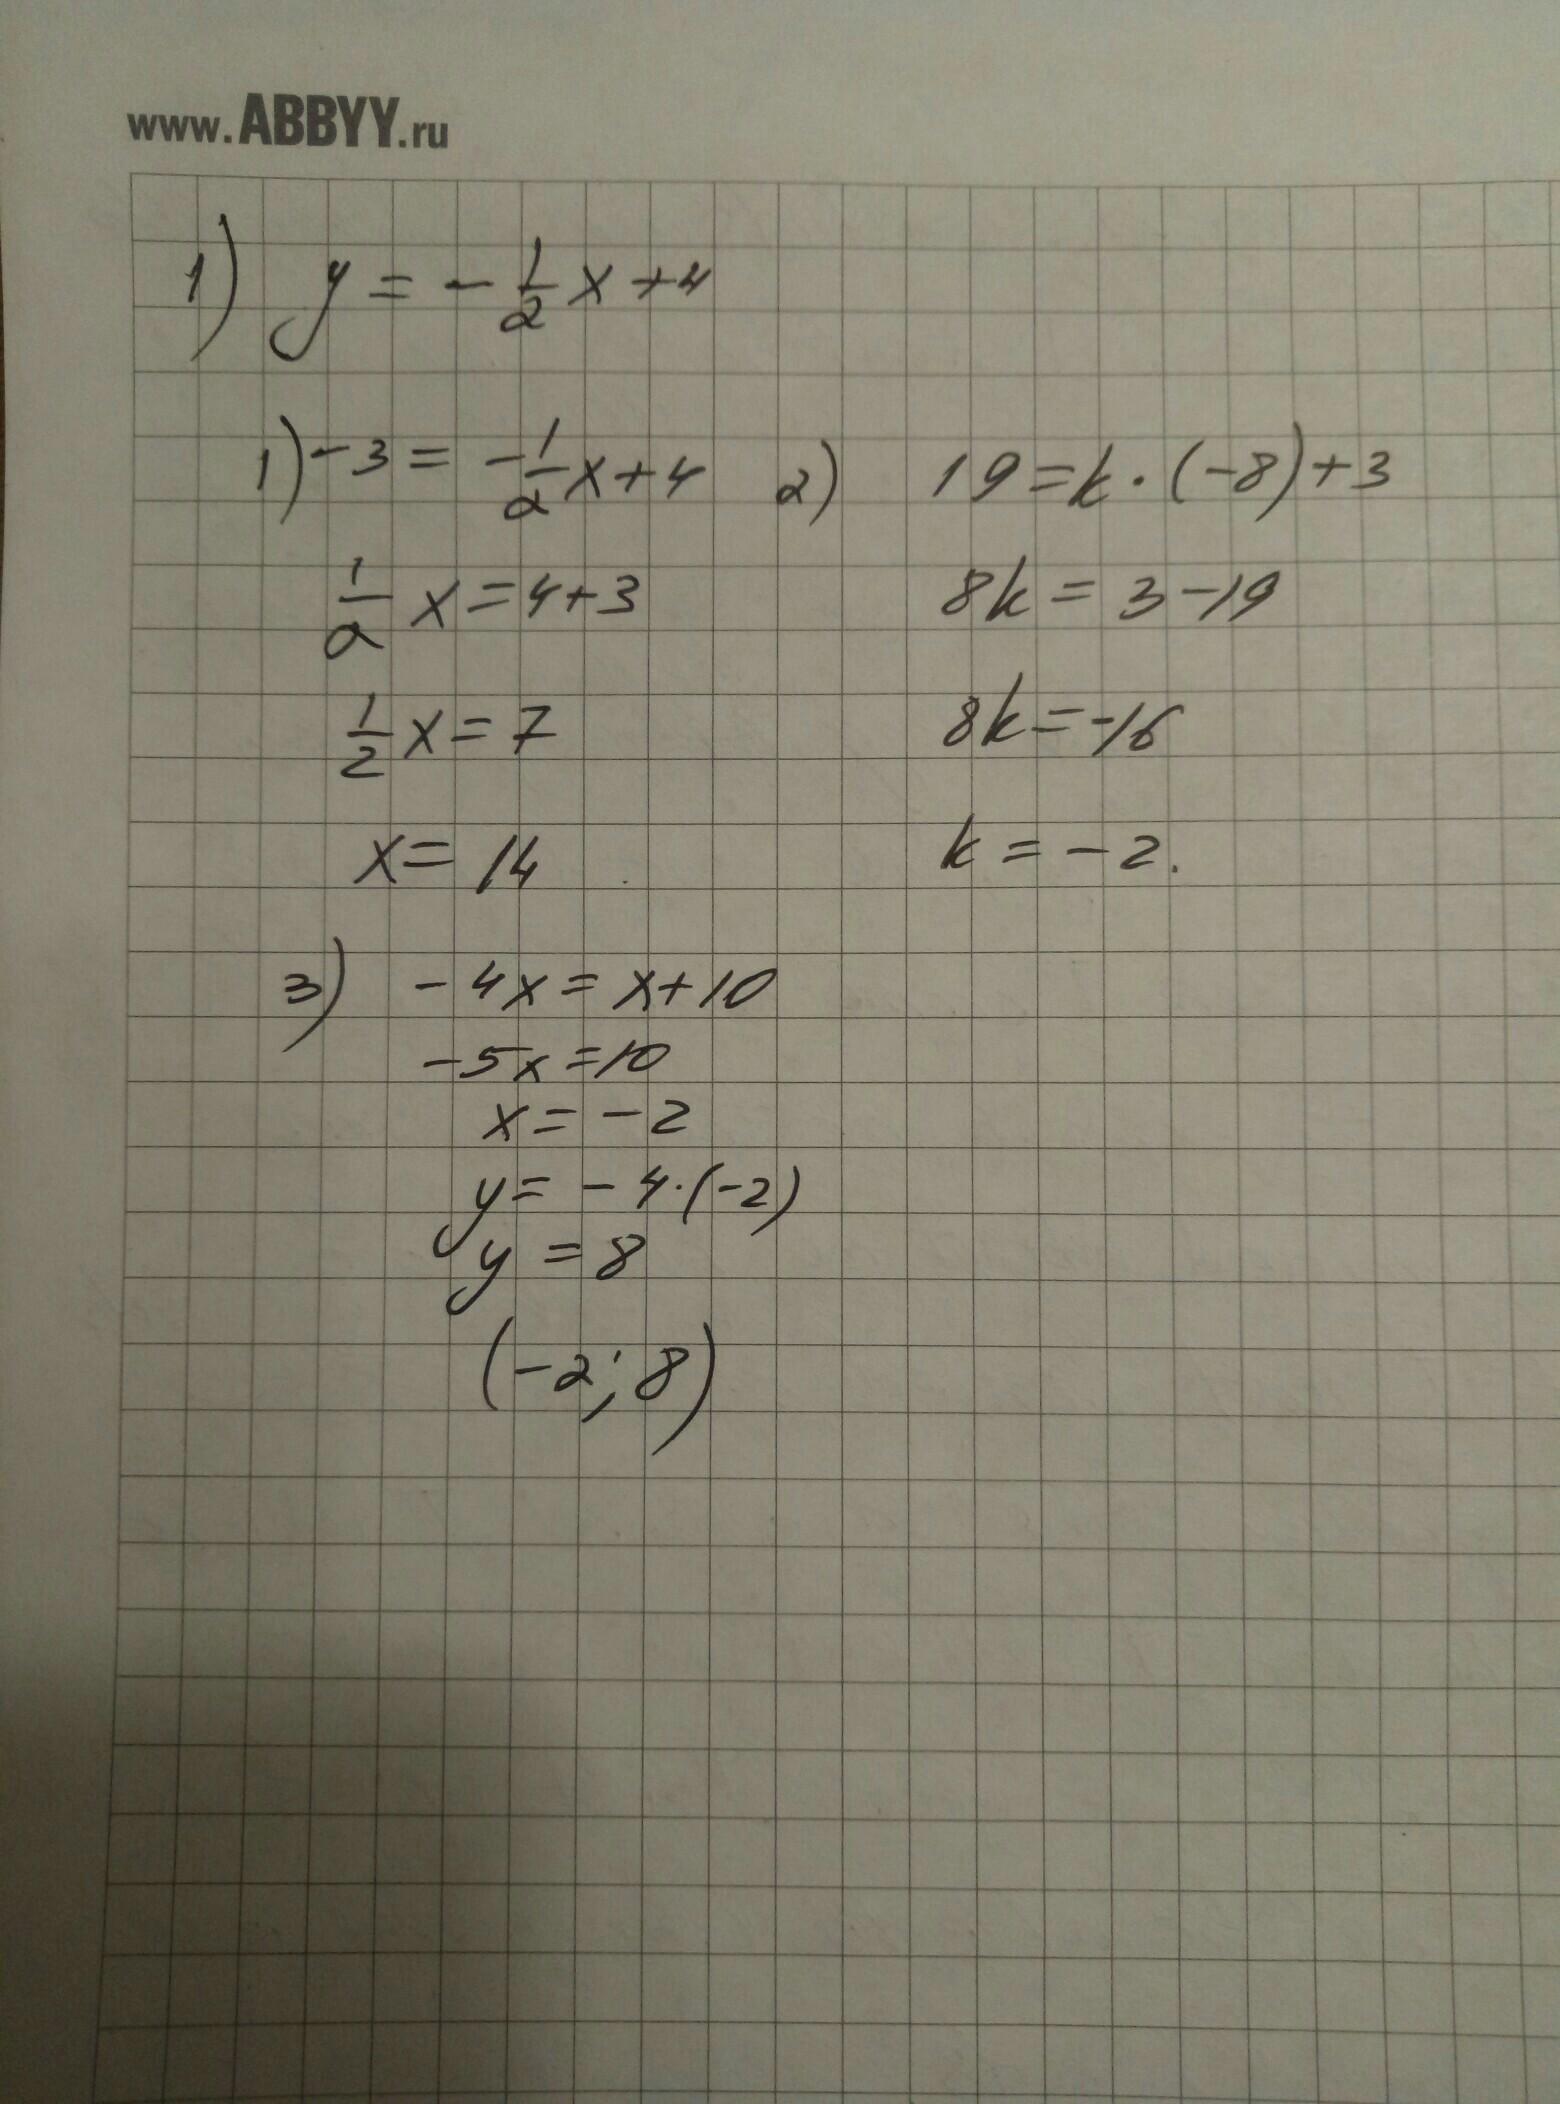 www.ABBYY.ru
1) y = - 1/2 x + 4
1) -3 = - 1/2 x + 4
1/2 x = 4 + 3
1/2 x = 7
x = 14
2) 19 = k · (-8) + 3
8k = 3 - 19
8k = -16
k = -2.
3) -4x = x + 10
-5x = 10
x = -2
y = -4 · (-2)
y = 8
(-2; 8)